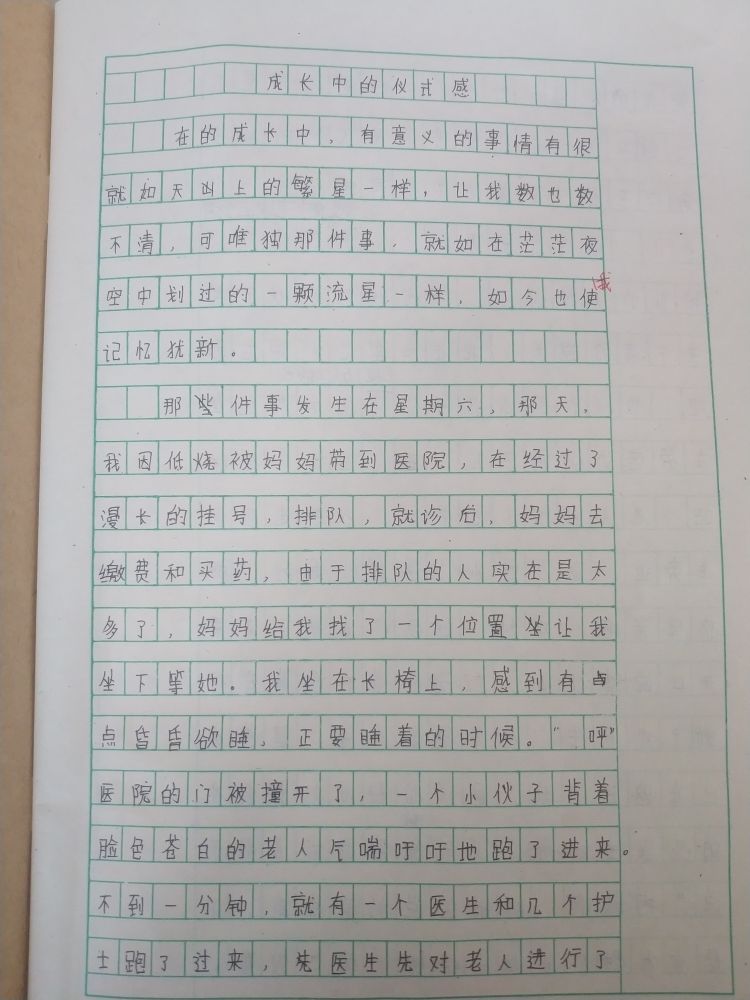 成长中的仪式感
在的成长中，有意义的事情有很
就如天凶上的繁星一样，让我数也数
不清，可唯独那件事，就如在茫茫夜
空中划过的一颗流星一样，如今也使我
记忆犹新。
那些件事发生在星期六，那天，
我因低烧被妈妈带到医院，在经过了
漫长的挂号，排队，就诊后，妈妈去
缴费和买药，由于排队的人实在是太
多了，妈妈给我找了一个位置坐让我
坐下等她。我坐在长椅上，感到有
点昏昏欲睡，正要睡着的时候。"呯"
医院的门被撞开了，一个小伙子背着
脸色苍白的老人气喘吁吁地跑了进来。
不到一分钟，就有一个医生和几个护
士跑了过来，先医生先对老人进行了